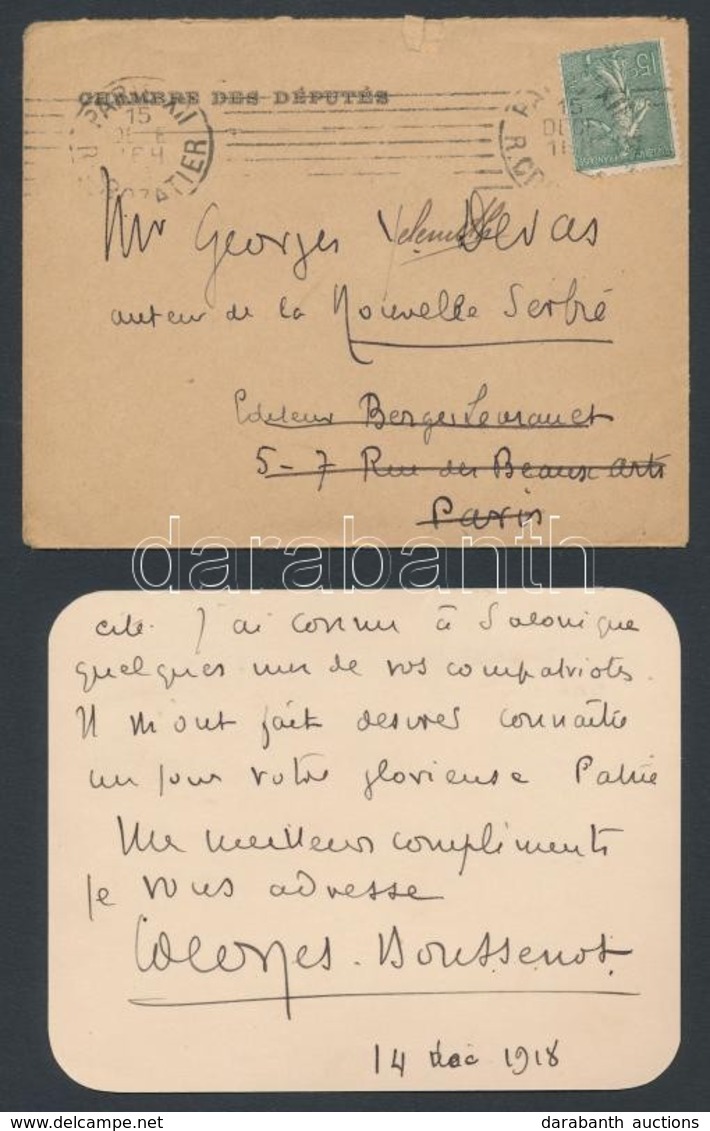 CHAMBRE DES DÉPUTÉS
PARIS XII
15
DEC
R. CROZATIER
15
DEC
15c
Mr Georges Devas
auteur de la Nouvelle Serbie
Editeur Berger Levrault
5-7 Rue des Beaux arts
Paris
darabanth
cité. J'ai connu à Salonique
quelques uns de vos compatriotes.
Il m'ont fait desirer connaitre
un jour votre glorieuse Patrie
Mes meilleurs compliments
je vous adresse
Georges. Boussenot
14 dec 1918
www.darabanth.com
darabanth auctions